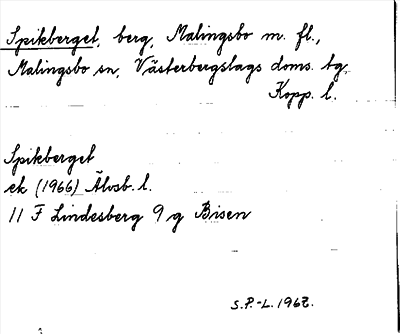 Spikberget, berg, Malingsbo m. fl.,
Malingsbo sn, Västerbergslags doms. tg,
Kopp. l.
Spikberget
ek (1966) Älvsb. l.
11 F Lindesberg 9 g Bisen
S.P.-L. 1967.